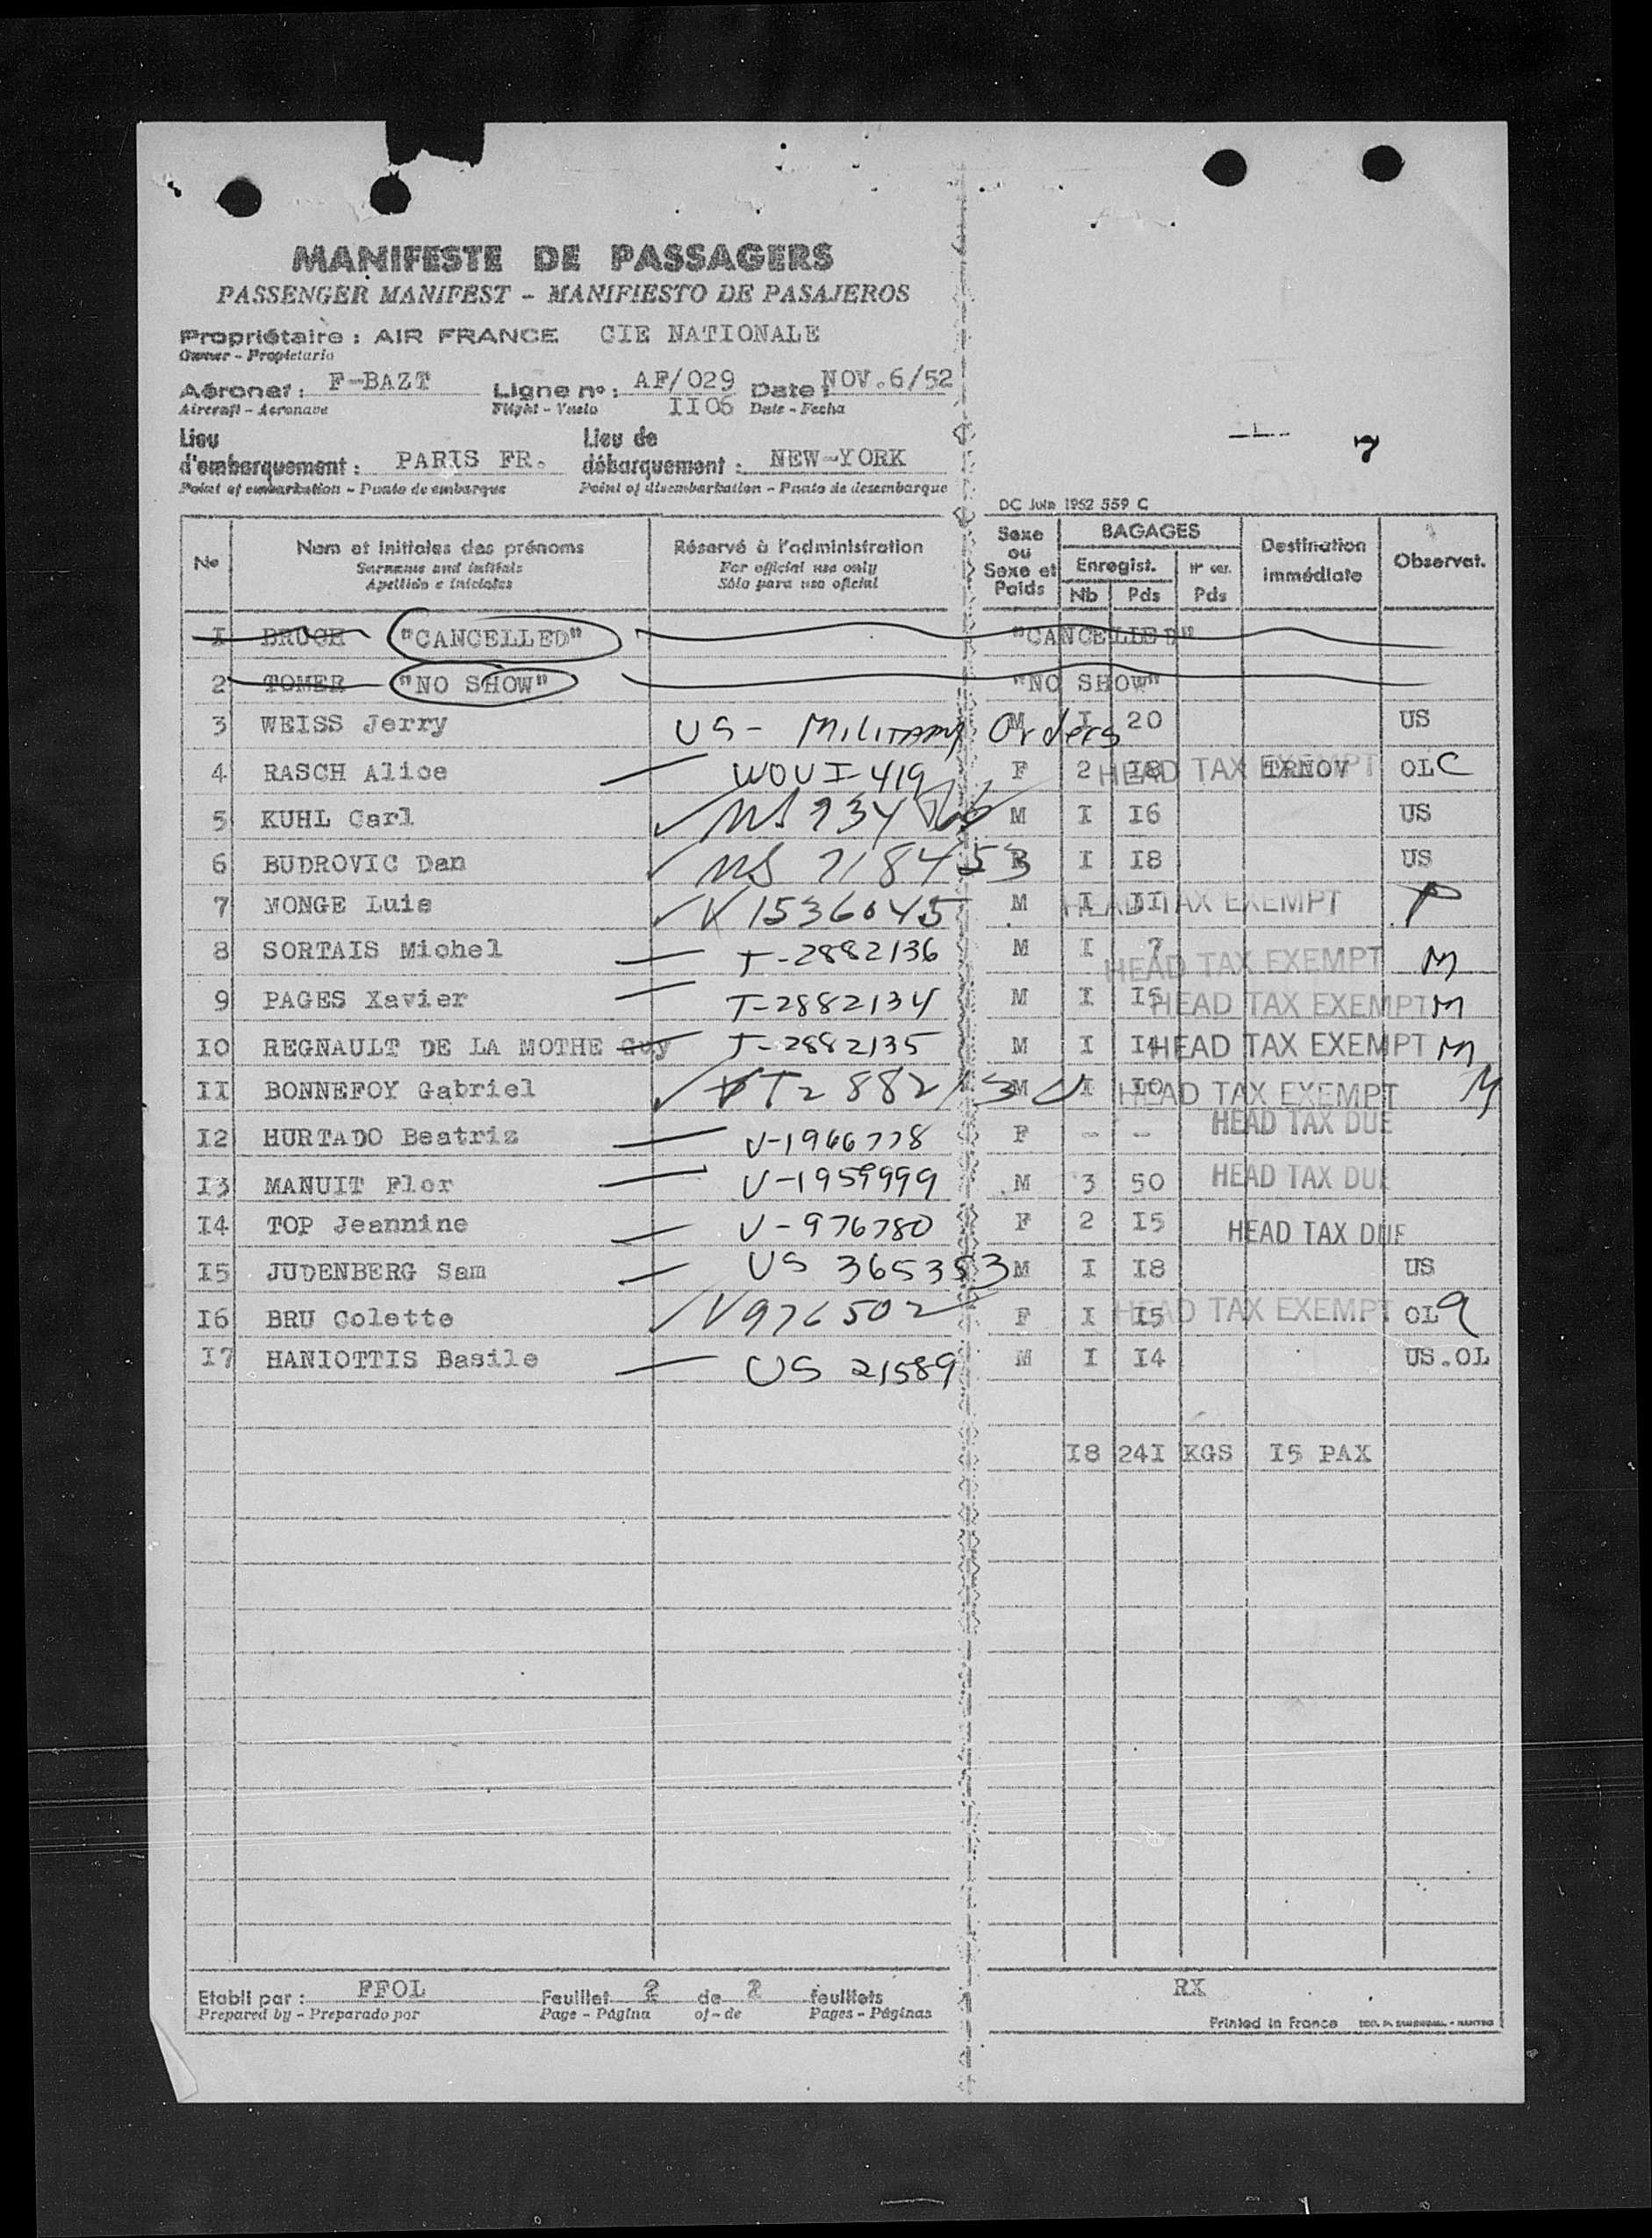 7
MANIFESTE DE PASSAGERS
PASSENGER MANIFEST - MANIFIESTO DE PASAJEROS
Propriétaire : AIR FRANCE CIE NATIONALE
Owner - Propietario
Aéronef : F-BAZT Ligne nº : AF/029 Date : NOV.6/52
Aircraft - Aeronave Flight - Vuelo II06 Date - Fecha
Lieu Lieu de
d'embarquement : PARIS FR. débarquement : NEW-YORK
Point of embarkation - Punto de embarque Point of disembarkation - Punto de desembarque
DC Juin 1952 559 C
Nº Nom et initiales des prénoms Réservé à l'administration Sexe ou Sexe et Poids BAGAGES Destination immédiate Observat.
Surname and initials For official use only Enregist.
Apellido e iniciales Sólo para uso oficial Nb Pds Pds
I BRUCE "CANCELLED" "CANCELLED"
2 TOMER "NO SHOW" "NO SHOW"
3 WEISS Jerry US - MILITARY Orders M I 20 US
4 RASCH Alice WOUI-419 F 2 I8 HEAD TAX EXEMPT TRNOV OL C
5 KUHL Carl M I I6 US
6 BUDROVIC Dan 718453 I I8 US
7 MONGE Luis V 1536045 M I II HEAD TAX EXEMPT P
8 SORTAIS Michel T-2882136 M I 7 HEAD TAX EXEMPT M
9 PAGES Xavier T-2882134 M I I5 HEAD TAX EXEMPT M
I0 REGNAULT DE LA MOTHE Guy T-2882135 M I I4 HEAD TAX EXEMPT M
II BONNEFOY Gabriel M I I0 HEAD TAX EXEMPT M
I2 HURTADO Beatriz V-1966778 F - - HEAD TAX DUE
I3 MANUIT Flor V-1959999 M 3 50 HEAD TAX DUE
I4 TOP Jeannine V-976780 F 2 I5 HEAD TAX DUE
I5 JUDENBERG Sam US 365353 M I I8 US
I6 BRU Colette V976502 F I I5 HEAD TAX EXEMPT OL
I7 HANIOTTIS Basile US 21589 M I I4 US.OL
I8 24I KGS I5 PAX
Etabli par : FFOL Feuillet 2 de 2 feuillets RX
Prepared by - Preparado por Page - Página of - de Pages - Páginas
Printed in France